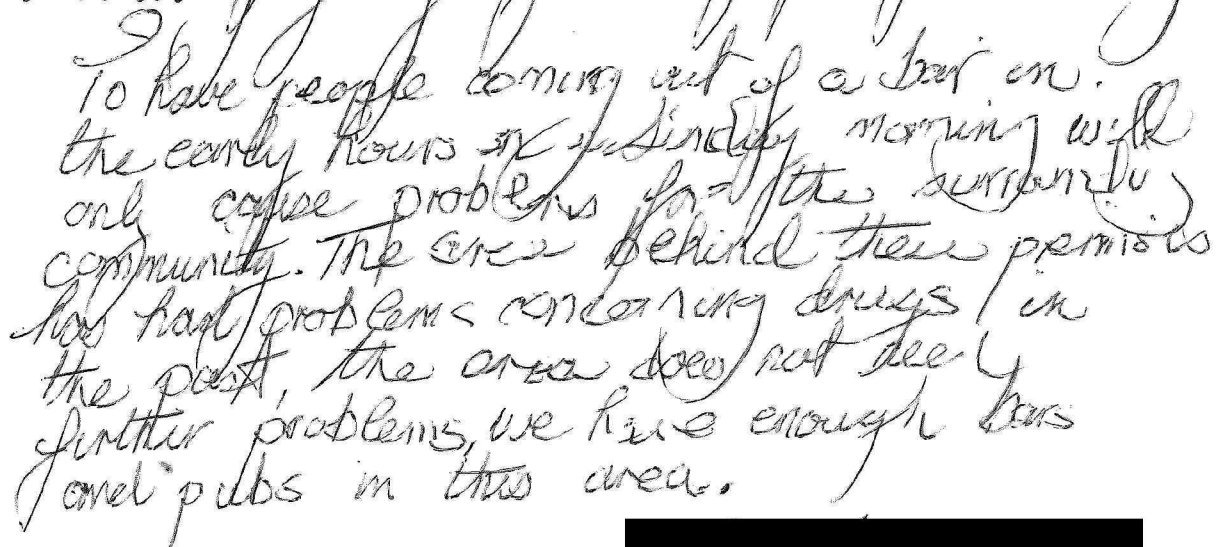 To have people coming out of a bar in
the early hours on a Sunday morning will
only cause problems for the surroundy
community. The area behind these premises
has had problems concerning drugs in
the past, the area does not need
further problems, we have enough bars
and pubs in this area.